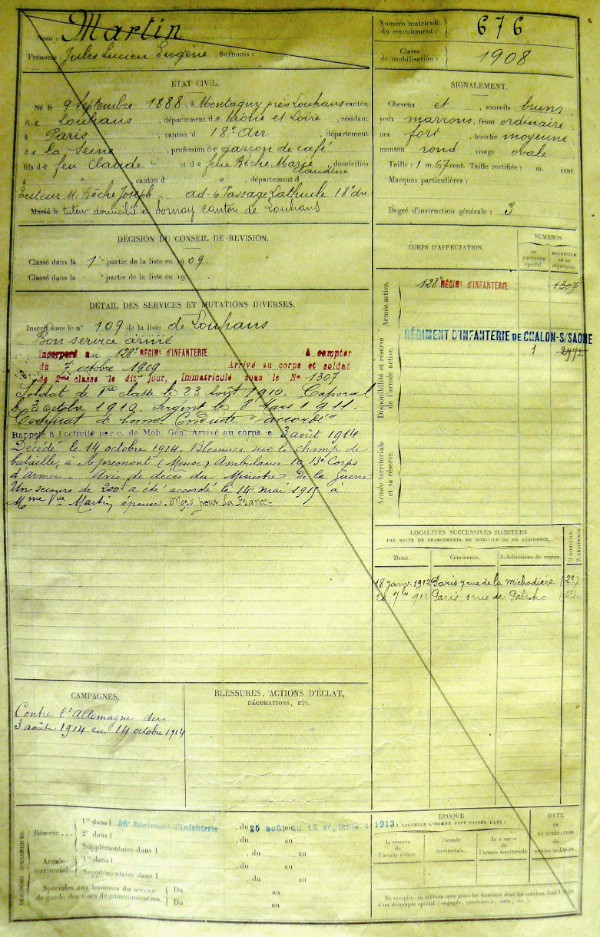 Nom : Martin
Prénoms : Jules Lucien Eugène Surnoms :
Numéro matricule du recrutement : 676
Classe de mobilisation : 1908
ÉTAT CIVIL.
Né le 9 Septembre 1888, à Montagny près Louhans canton
de Louhans, département de Saône et Loire, résidant
à Paris, canton d 18e der, département
de la Seine, profession de garçon de café
fils de feu Claude et de feue Bêche Marie Claudine, domiciliés
à canton d département d
tuteur M. Bêche Joseph ad. 6 Passage 18e
Marié le tuteur domicilié à Sornay canton de Louhans
SIGNALEMENT.
Cheveux et sourcils bruns
yeux marrons, front ordinaire
nez fort, bouche moyenne
menton rond visage ovale
Taille : 1 m. 67 cent. Taille rectifiée : m. cent.
Marques particulières :
Degré d'instruction générale : 3
DÉCISION DU CONSEIL DE RÉVISION.
Classé dans la 1e partie de la liste en 1909.
Classé dans la partie de la liste en 19
DÉTAIL DES SERVICES ET MUTATIONS DIVERSES.
Inscrit sous le n° 109 de la liste de Louhans
Bon service armé
Incorporé au 128e RÉGIMt D'INFANTERIE À compter
du 7 octobre 1909 Arrivé au corps et soldat
de 2me classe le dit jour, Immatriculé sous le No 1307
Soldat de 1re classe le 23 1910. Caporal
le 3 octobre 1910. Sergent le 8 Mars 1911.
Certificat de bonne Conduite "accordé"
Rappelé à l'activité par o. de Mob. Gén. Arrivé au corps le 3 août 1914
Décédé le 14 octobre 1914. Blessures sur le champ de
bataille, à Apremont (Meuse) Ambulance 10/13e Corps
d'Armée. Avis de décès du Ministre de la Guerre
Un secours de 200 a été accordé le 14 mai 1915 à
Mme Vve Martin, épouse. Mort pour la France
CORPS D'AFFECTATION.
NUMÉROS
Armée active.
128e RÉGIMt D'INFANTERIE 1307
Disponibilité et réserve de l'armée active.
RÉGIMENT D'INFANTERIE DE CHALON-S/SAÔNE
Armée territoriale et sa réserve.
LOCALITÉS SUCCESSIVES HABITÉES
PAR SUITE DE CHANGEMENTS DE DOMICILE OU DE RÉSIDENCE.
Dates. Communes. Subdivisions de région.
18 janvr 1912 Paris 7 rue de la Michodière (2e)
Paris 1 rue de
CAMPAGNES.
Contre l'Allemagne du
3 août 1914 au 14 octobre 1914
BLESSURES, ACTIONS D'ÉCLAT,
DÉCORATIONS, ETC.
Réserve
1er dans l 56e Régiment d'Infanterie, du 25 août au 1913
2e dans l , du au
Supplémentaire dans l , du au
Armée territoriale
1er dans l , du au
Supplémentaire dans l , du au
Spéciales aux hommes du service
de garde des voies de communication. Du au
Du au
ÉPOQUE
À LAQUELLE L'HOMME DOIT PASSER DANS :
la réserve de l'armée active. l'armée territoriale. la réserve de l'armée territoriale.
DATE
DE LA LIBÉRATION
du service militaire.